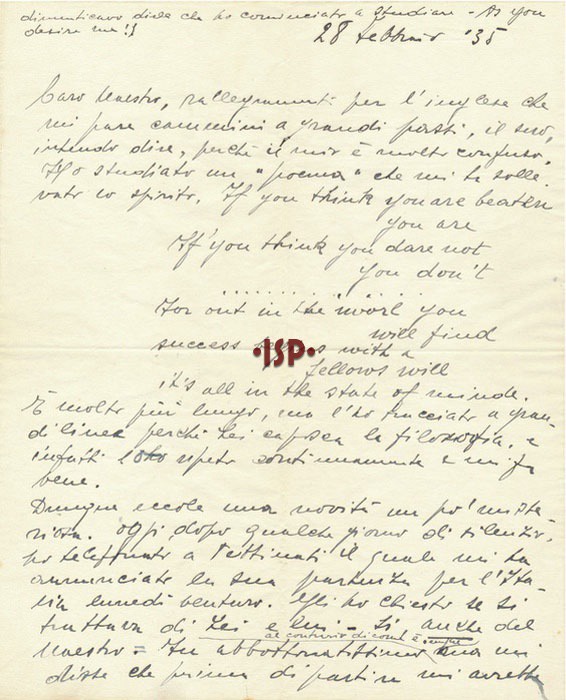 dimenticavo dirle che ho cominciato a studiare - As you
desire me!!
28 febbraio '35
Caro Maestro, rallegramenti per l'inglese che
mi pare cammini a grandi passi, il suo,
intendo dire, perchè il mio è molto confuso.
Ho studiato un "poema" che mi ha solle
vato lo spirito. If you think you are beaten
you are
If you think you dare not
you don't
. . . . . . . . . . . .
For out in the worl you
will find
success with a
fellows will
it's all in the state of minde.
È molto più lungo, ma l'ho tracciato a gran
di linee perchè Lei capisca la filosofia, e
infatti lo ripeto continuamente e mi fa
bene.
Dunque eccole una novità un po' miste
riosa. Oggi dopo qualche giorno di silenzio,
ho telefonato a il quale mi ha
annunciato la sua partenza per l'Ita
lia lunedì venturo. Gli ho chiesto se si
trattava di Lei e lui - Si anche del
al contrario di com'è sempre
Maestro = Fu abbottonatissimo ma mi
disse che prima di partire mi avrebbe
·ISP·